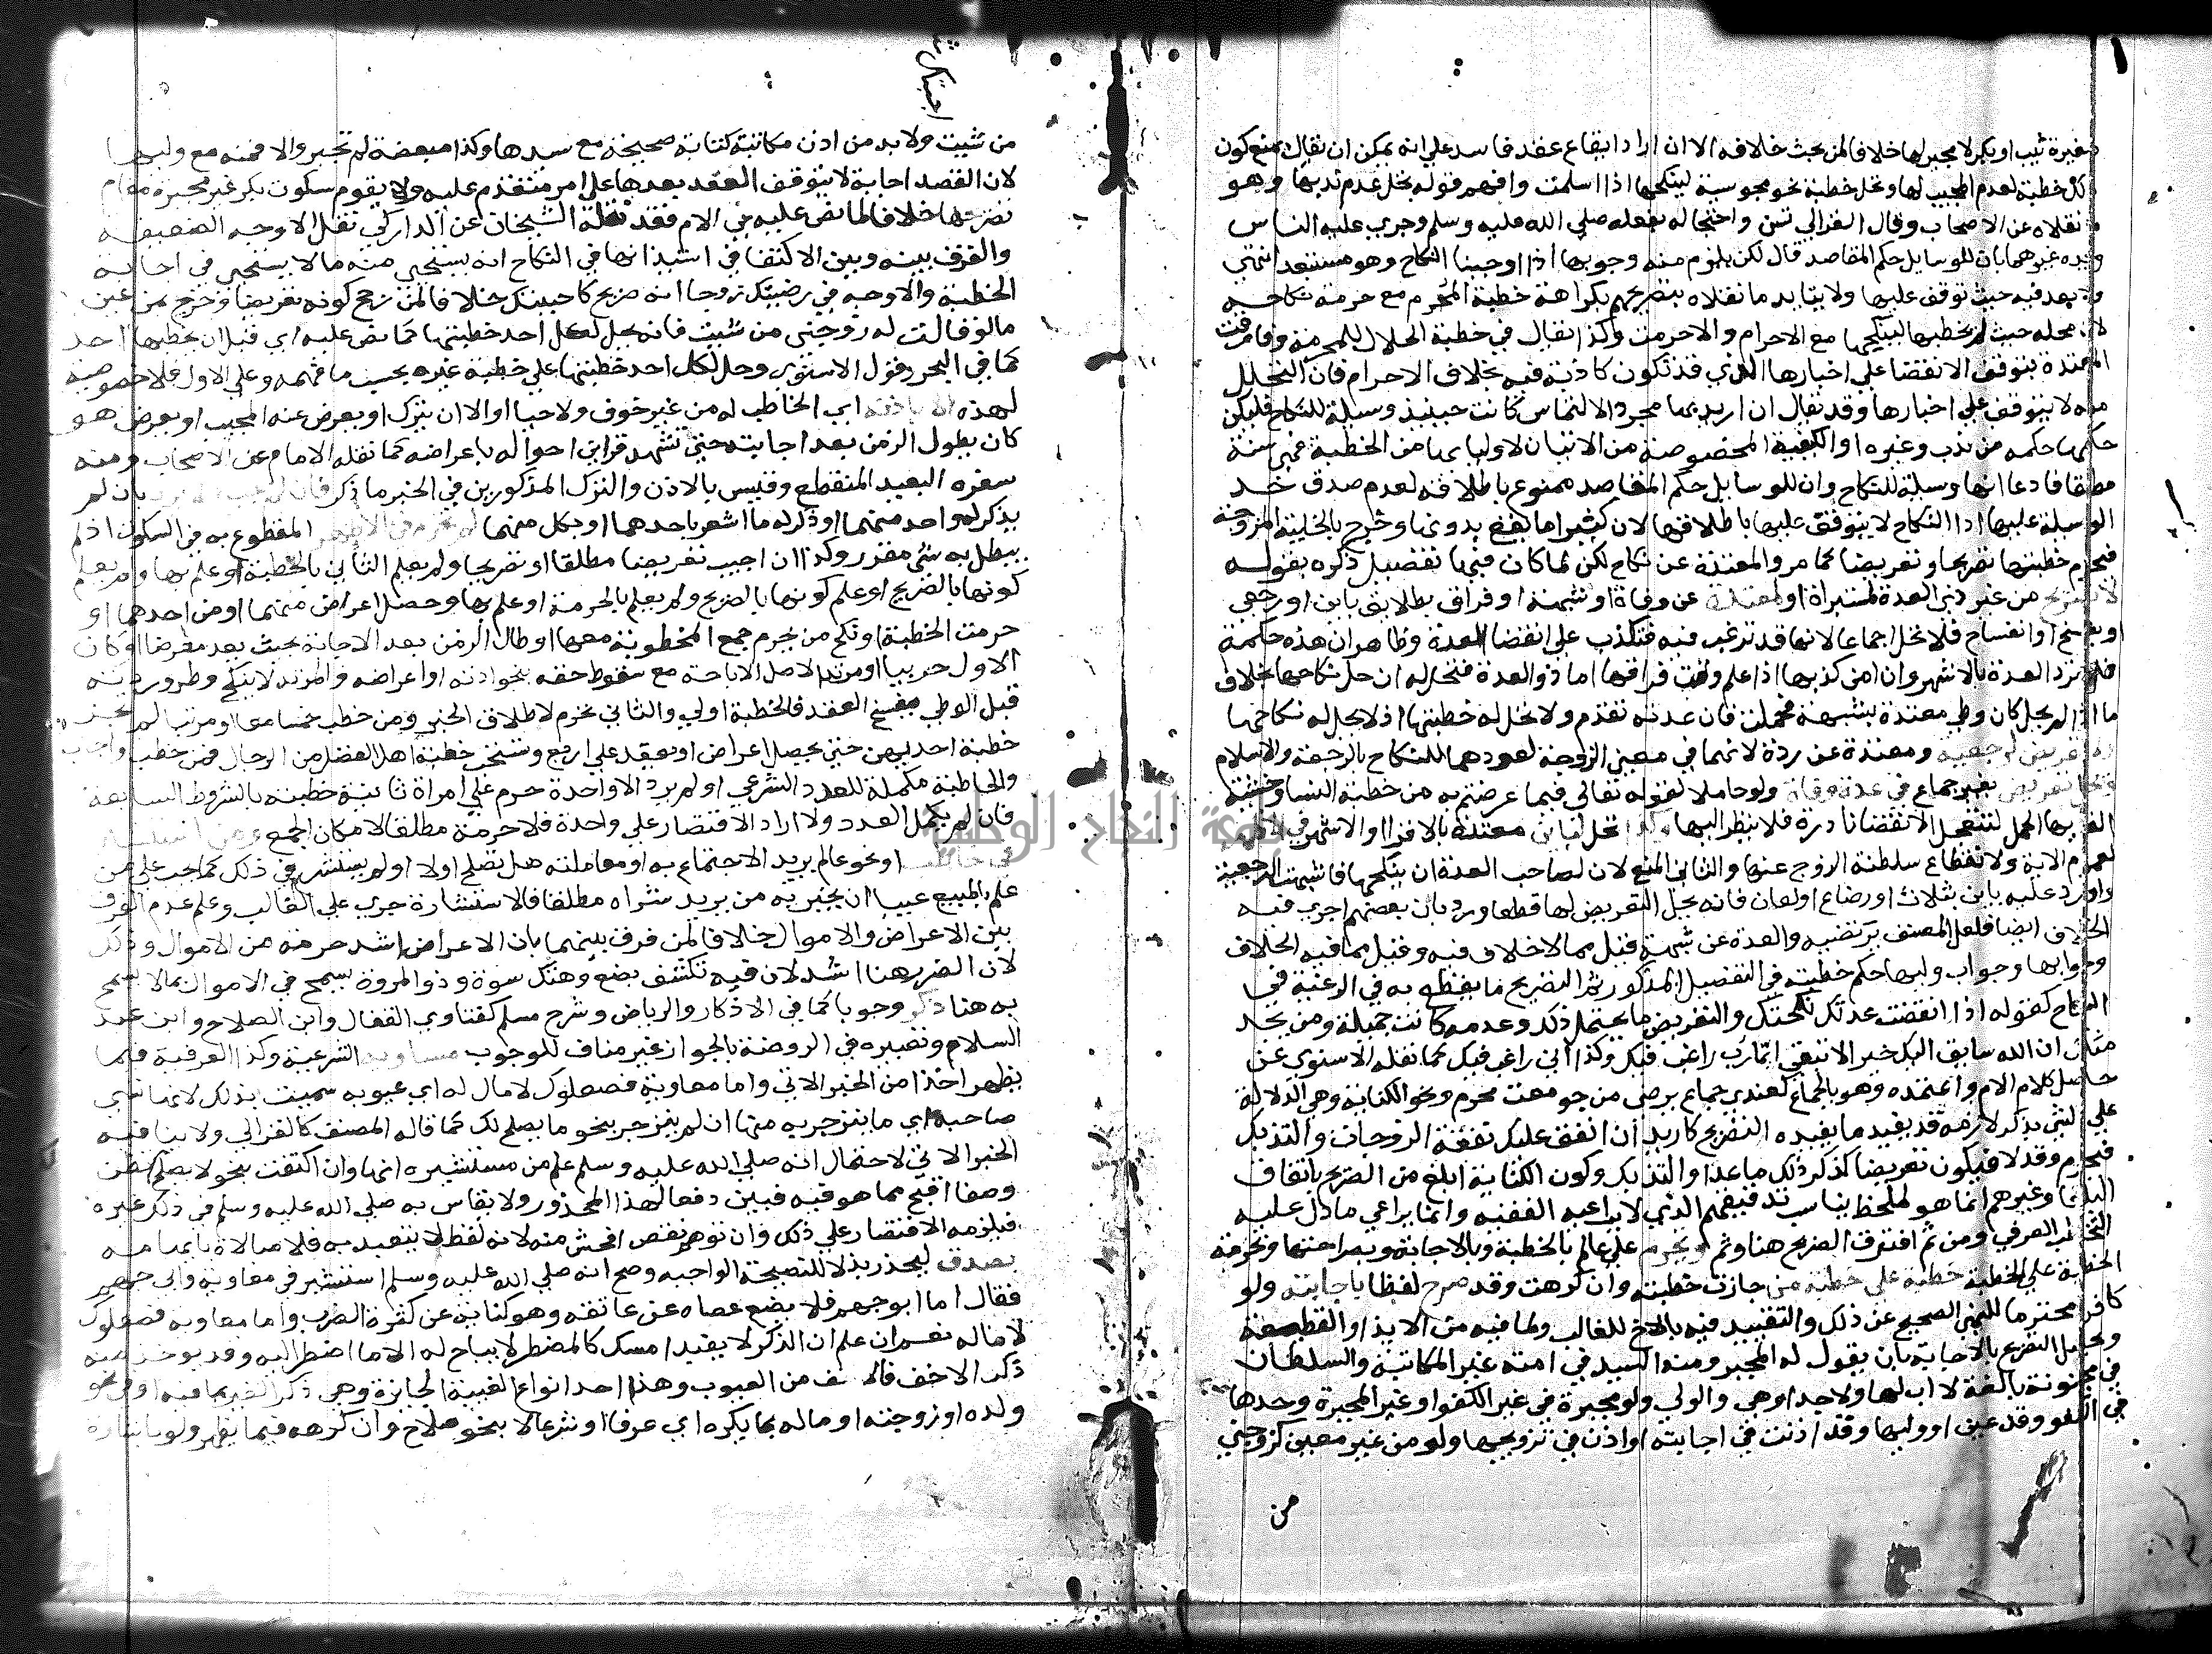 صغيرة ثيب او بكر لا مجبر لها خلافا لمن بحث خلافه الا ان اراد ايقاع عقد فاسد علي انه يمكن ان يقال بمنع كون
كل خطبة لعدم المجيب لها وتحل خطبة نحو مجوسية لينكحها اذا اسلمت وافهم قوله تحل عدم ندبها وهو
نقلاه عن الاصحاب وقال الغزالي تسن واحتجا له بفعله صلي الله عليه وسلم وجري عليه الناس
وايده غيرهما بان للوسايل حكم المقاصد قال لكن يلزم منه وجوبها اذا اوجبنا النكاح وهو مستبعد انتهي
ولا بعد فيه حيث توقف عليها ولا يتايد ما نقلاه بتصريحهم بكراهة خطبة المحرم مع حرمة نكاحه
لان محله حيث لم يخطبها لينكحها مع الاحرام والا حرمت وكذا يقال في خطبة الحلال للمحرمة وفارقت
المعتدة بتوقف الانقضا علي اخبارها الذي قد تكون كاذبة فيه بخلاف الاحرام فان التحلل
منه لا يتوقف علي اخبارها وقد يقال ان اريد بها مجرد الالتماس كانت حينيذ وسيلة للنكاح فليكن
حكمها حكمه من ندب وغيره او الكيفية المخصوصة من الاتيان لاوليايها من الخطبة فهي سنة
مطلقا فادعا انها وسيلة للنكاح وان للوسايل حكم المقاصد ممنوع باطلاقه لعدم صدق حد
الوسيلة عليها اذ النكاح لا يتوقف عليها باطلاقها لان كثيرا ما يقع بدونها وخرج بالخلية المزوجة
فيحرم خطبتها تصريحا وتعريضا كما مر والمعتدة عن نكاح لكن لما كان فيها تفصيل ذكره بقوله
لا تصريح من غير ذي العدة لمستبراة او لمعتدة عن وفاة او شبهة او فراق بطلاق باين او رجعي
او بفسخ او انفساخ فلا تحل اجماعا لانها قد ترغب فيه فتكذب علي انقضا العدة وظاهر ان هذه حكمة
فلا ترد العدة بالاشهر وان امن كذبها اذا علم وقت فراقها اما ذو العدة فتحل له ان حل نكاحها بخلاف
ما اذا لم يحل كان وطي معتدة بشبهة فحملت فان عدته تقدم ولا تحل له خطبتها اذ لا يحل له نكاحها
ولا تعريض لرجعية ومعتدة عن ردة لانهما في معني الزوجة لعودهما للنكاح بالرجعة والاسلام
وتحل تعريض بغير جماع في عدة وفاة ولو حاملا لقوله تعالي فيما عرضتم به من خطبة النسا وخشية
القايها الحمل لتتعجل الانقضا نادرة فلا ينظر اليها وكذا تحل لباين معتدة بالاقرا او الاشهر في الاظهر
لعموم الاية ولانقطاع سلطنة الزوج عنها والثاني المنع لان لصاحب العدة ان ينكحها فاشبهت الرجعية
واورد عليه باين بثلاث او رضاع او لعان فانه يحل التعريض لها قطعا ورد بان بعضهم اجري فيه
الخلاف ايضا فلعل المصنف يرتضيه والعدة عن شبهة قيل مما لا خلاف فيه وقيل مما فيه الخلاف
وجوابها وجواب وليها حكم خطبته في التفصيل المذكور ثم التصريح ما يقطع به في الرغبة في
النكاح كقوله اذا انقضت عدتك نكحتك والتعريض ما يحتمل ذلك وعدمه كانت جميلة ومن يجد
مثلك ان الله سايق اليك خير الا تبقي ايما رب راغب فيك وكذا اني راغب فيك كما نقله الاسنوي عن
حاصل كلام الام واعتمده وهو بالجماع كعندي جماع يرضي من جومعت محرم ونحو الكناية وهي الدلالة
علي الشي بذكر لازمه قد يفيد ما يفيده التصريح كاريد ان انفق عليك نفقة الزوجات والتذبك
فيحرم وقد لا فيكون تعريضا كذكر ذلك ما عدا والتذبك وكون الكناية ابلغ من الصريح باتفاق
البلغا وغيرهم انما هو لملحظ يناسب تدقيقهم الذي لا يراعيه الفقيه وانما يراعي ما دل عليه
التخاطب العرفي ومن ثم افترق الصريح هنا وثم ويحرم علي عالم بالخطبة وبالاجابة وبصراحتها وبحرمة
الخطبة علي الخطبة خطبة علي خطبة من جازت خطبته وان كرهت وقد صرح لفظا باجابته ولو
كافرا محترما للنهي الصحيح عن ذلك والتقييد فيه بالاخ للغالب ولما فيه من الايذا والقطيعة
ويحصل التصريح بالاجابة بان يقول له المجبر ومنه السيد في امته غير المكاتبة والسلطان
في مجنونة بالغة لا اب لها ولا جد او هي والولي ولو مجبرة في غير الكفو او غير المجبرة وحدها
في الكفو وقد عين او وليها وقد اذنت في اجابته او اذن في تزويجها ولو من غير معين كزوجني
من
اجبتك
من شيت ولا بد من اذن مكاتبة كتابة صحيحة مع سيدها وكذا مبعضة لم تجبر والا فمنه مع وليها
لان القصد اجابة لا يتوقف العقد بعدها علي امر متقدم عليه ولا يقوم سكوت بكر غير مجبرة مقام
تصريحها خلافا لما نص عليه في الام فقد نقله الشيخان عن الداركي نقل الاوجه الضعيفة
والفرق بينه وبين الاكتفا في استيذانها في النكاح انه يستحيي منه ما لا يستحيي في اجابة
الخطبة والاوجه في رضيتك زوجا انه صريح كاجبتك خلافا لمن رجح كونه تعريضا وخرج بمن عين
ما لو قالت له زوجني من شيت فانه يحل لكل احد خطبتها كما نص عليه اي قبل ان يخطبها احد
كما في البحر وقول الاسنوي وحل لكل احد خطبتها علي خطبة غيره بحسب ما فهمه وعلي الاول فلا خصوصية
لهذه الا باذنه اي الخاطب له من غير خوف ولا حيا او الا ان يترك او يعرض عنه المجيب او يعرض هو
كان يطول الزمن بعد اجابته حتي تشهد قراين احواله باعراضه كما نقله الامام عن الاصحاب ومنه
سفره البعيد المنقطع وقيس بالاذن والترك المذكورين في الخبر ما ذكر فان لم يجب ولم يرد بان لم
يذكر له واحد منهما او ذكر له ما اشعر باحدهما او بكل منهما لم تحرم في الاظهر المقطوع به في السكوت اذ لم
يبطل به شي مقرر وكذا ان اجيب تعريضا مطلقا او تصريحا ولم يعلم الثاني بالخطبة او علم بها ولم يعلم
كونها بالصريح او علم كونها بالصريح ولم يعلم بالحرمة او علم بها وحصل اعراض منهما او من احدهما او
حرمت الخطبة او نكح من يحرم جمع المخطوبة معها او طال الزمن بعد الاجابة بحيث يعد معرضا او كان
الاول حربيا او مرتدا لاصل الاباحة مع سقوط حقه بنحو اذنه او اعراضه والمرتد لا ينكح وطرو ردته
قبل الوطي يفسخ العقد فالخطبة اولي والثاني يحرم لاطلاق الخبر ومن خطب خمسا معا او مرتبا لم تجز
خطبة احديهن حتي يحصل اعراض او يعقد علي اربع وتستحب خطبة اهل الفضل من الرجال فمن خطب واجب
والخاطبة مكملة للعدد الشرعي او لم يرد الا واحدة حرم علي امراة ثانية خطبته بالشروط السابقة
فان لم يكمل العدد ولا اراد الاقتصار علي واحدة فلا حرمة مطلقا لامكان الجمع ومن استشير
في خاطب او نحو عالم يريد الاجتماع به او معاملته هل تصلح او لا او لم يستشر في ذلك كما يجب علي من
علم بالمبيع عيبا ان يخبر به من يريد شراه مطلقا فالاستشارة جري علي الغالب وعلم عدم الفرق
بين الاعراض والاموال خلافا لمن فرق بينهما بان الاعراض اشد حرمة من الاموال وذلك
لان الضرر هنا اشد لان فيه تكشف بضع وهتك سوة وذو المروة يسمح في الاموال بما لا يسمح
به هنا ذكر وجوبا كما في الاذكار والرياض وشرح مسلم كفتاوي القفال وابن الصلاح وابن عبد
السلام وتعبيره في الروضة بالجواز غير مناف للوجوب مساويه الشرعية وكذا العرفية فيما
يظهر اخذا من الخبر الاتي واما معاوية فصعلوك لا مال له اي عيوبه سميت بذلك لانها تسي
صاحبه اي ما ينزجر به منها ان لم ينزجر بنحو ما يصلح لك كما قاله المصنف كالغزالي ولا ينافيه
الخبر الاتي لاحتمال انه صلي الله عليه وسلم علم من مستشيره انها وان اكتفت بنحو لا يصلح تظن
وصفا اقبح مما هو فيه فبين دفعا لهذا المحذور ولا يقاس به صلي الله عليه وسلم في ذكر غيره
فيلزمه الاقتصار علي ذلك وان توهم نقص افحش منه لانه لفظ لا يتقيد به فلا مبالاة بايهامه
بصدق ليحذر بذلا للنصيحة الواجبه وصح انه صلي الله عليه وسلم استشير في معاوية وابي جهم
فقال اما ابو جهم فلا يضع عصاه عن عاتقه وهو كناية عن كثرة الضرب واما معاوية فصعلوك
لا مال له نعم ان علم ان الذكر لا يفيد امسك كالمضطر لا يباح له الا ما اضطر اليه وقد يوخذ منه
ذكر الاخف فالاخف من العيوب وهذا احد انواع الغيبة الجايزة وهي ذكر الغير بما فيه او في نحو
ولده او زوجته او ماله بما يكره اي عرفا او شرعا لا بنحو صلاح وان كرهه فيما يظهر ولو باشارة